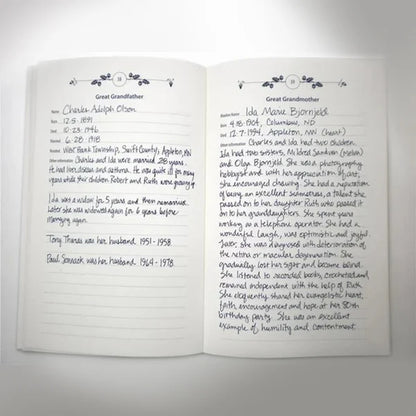 38
Great Grandfather
Name Charles Adolph Olson
Born 12-5-1891
Died 10-23-1946
Married 6-28-1918
Residence West Bank Township, Swift County, Appleton, MN
Other information Charles and Ida were married 28 years.
He had liver disease and asthma. He was quite ill for many
years while their children Robert and Ruth were growing up.
Ida was a widow for 5 years and then remarried.
Later she was widowed again for 6 years before
marrying again.
Tony Thares was her husband 1951-1958
Paul was her husband 1964-1978
39
Great Grandmother
Maiden Name Ida Marie Bjornjeld
Born 4-18-1904, Columbus, ND
Died 12-7-1994, Appleton, MN (heart)
Other information Charles and Ida had two children.
Ida had two sisters, Mildred Sandken (Melvin)
and Olga Bjornjeld. She was a photography
hobbyist and with her appreciation of art,
she encouraged drawing. She had a reputation
of being an excellent seamstress, a talent she
passed on to her daughter Ruth who passed it
on to her granddaughters. She spent years
working as a telephone operator. She had a
wonderful laugh, was optimistic and joyful.
Later, she was diagnosed with deterioration of
the retina or macular degeneration. She
gradually lost her sight and became blind.
She listened to recorded books, crocheted and
remained independent with the help of Ruth.
She eloquently shared her evangelistic heart,
faith, encouragement and hope at her 80th
birthday party. She was an excellent
example of humility and contentment.